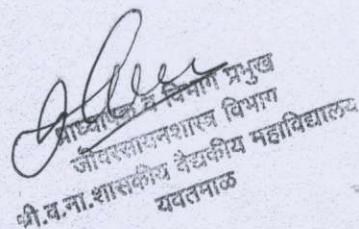 प्राध्यापक व विभाग प्रमुख
जीवरसायनशास्त्र विभाग
श्री.व.ना.शासकीय वैद्यकीय महाविद्यालय
यवतमाळ